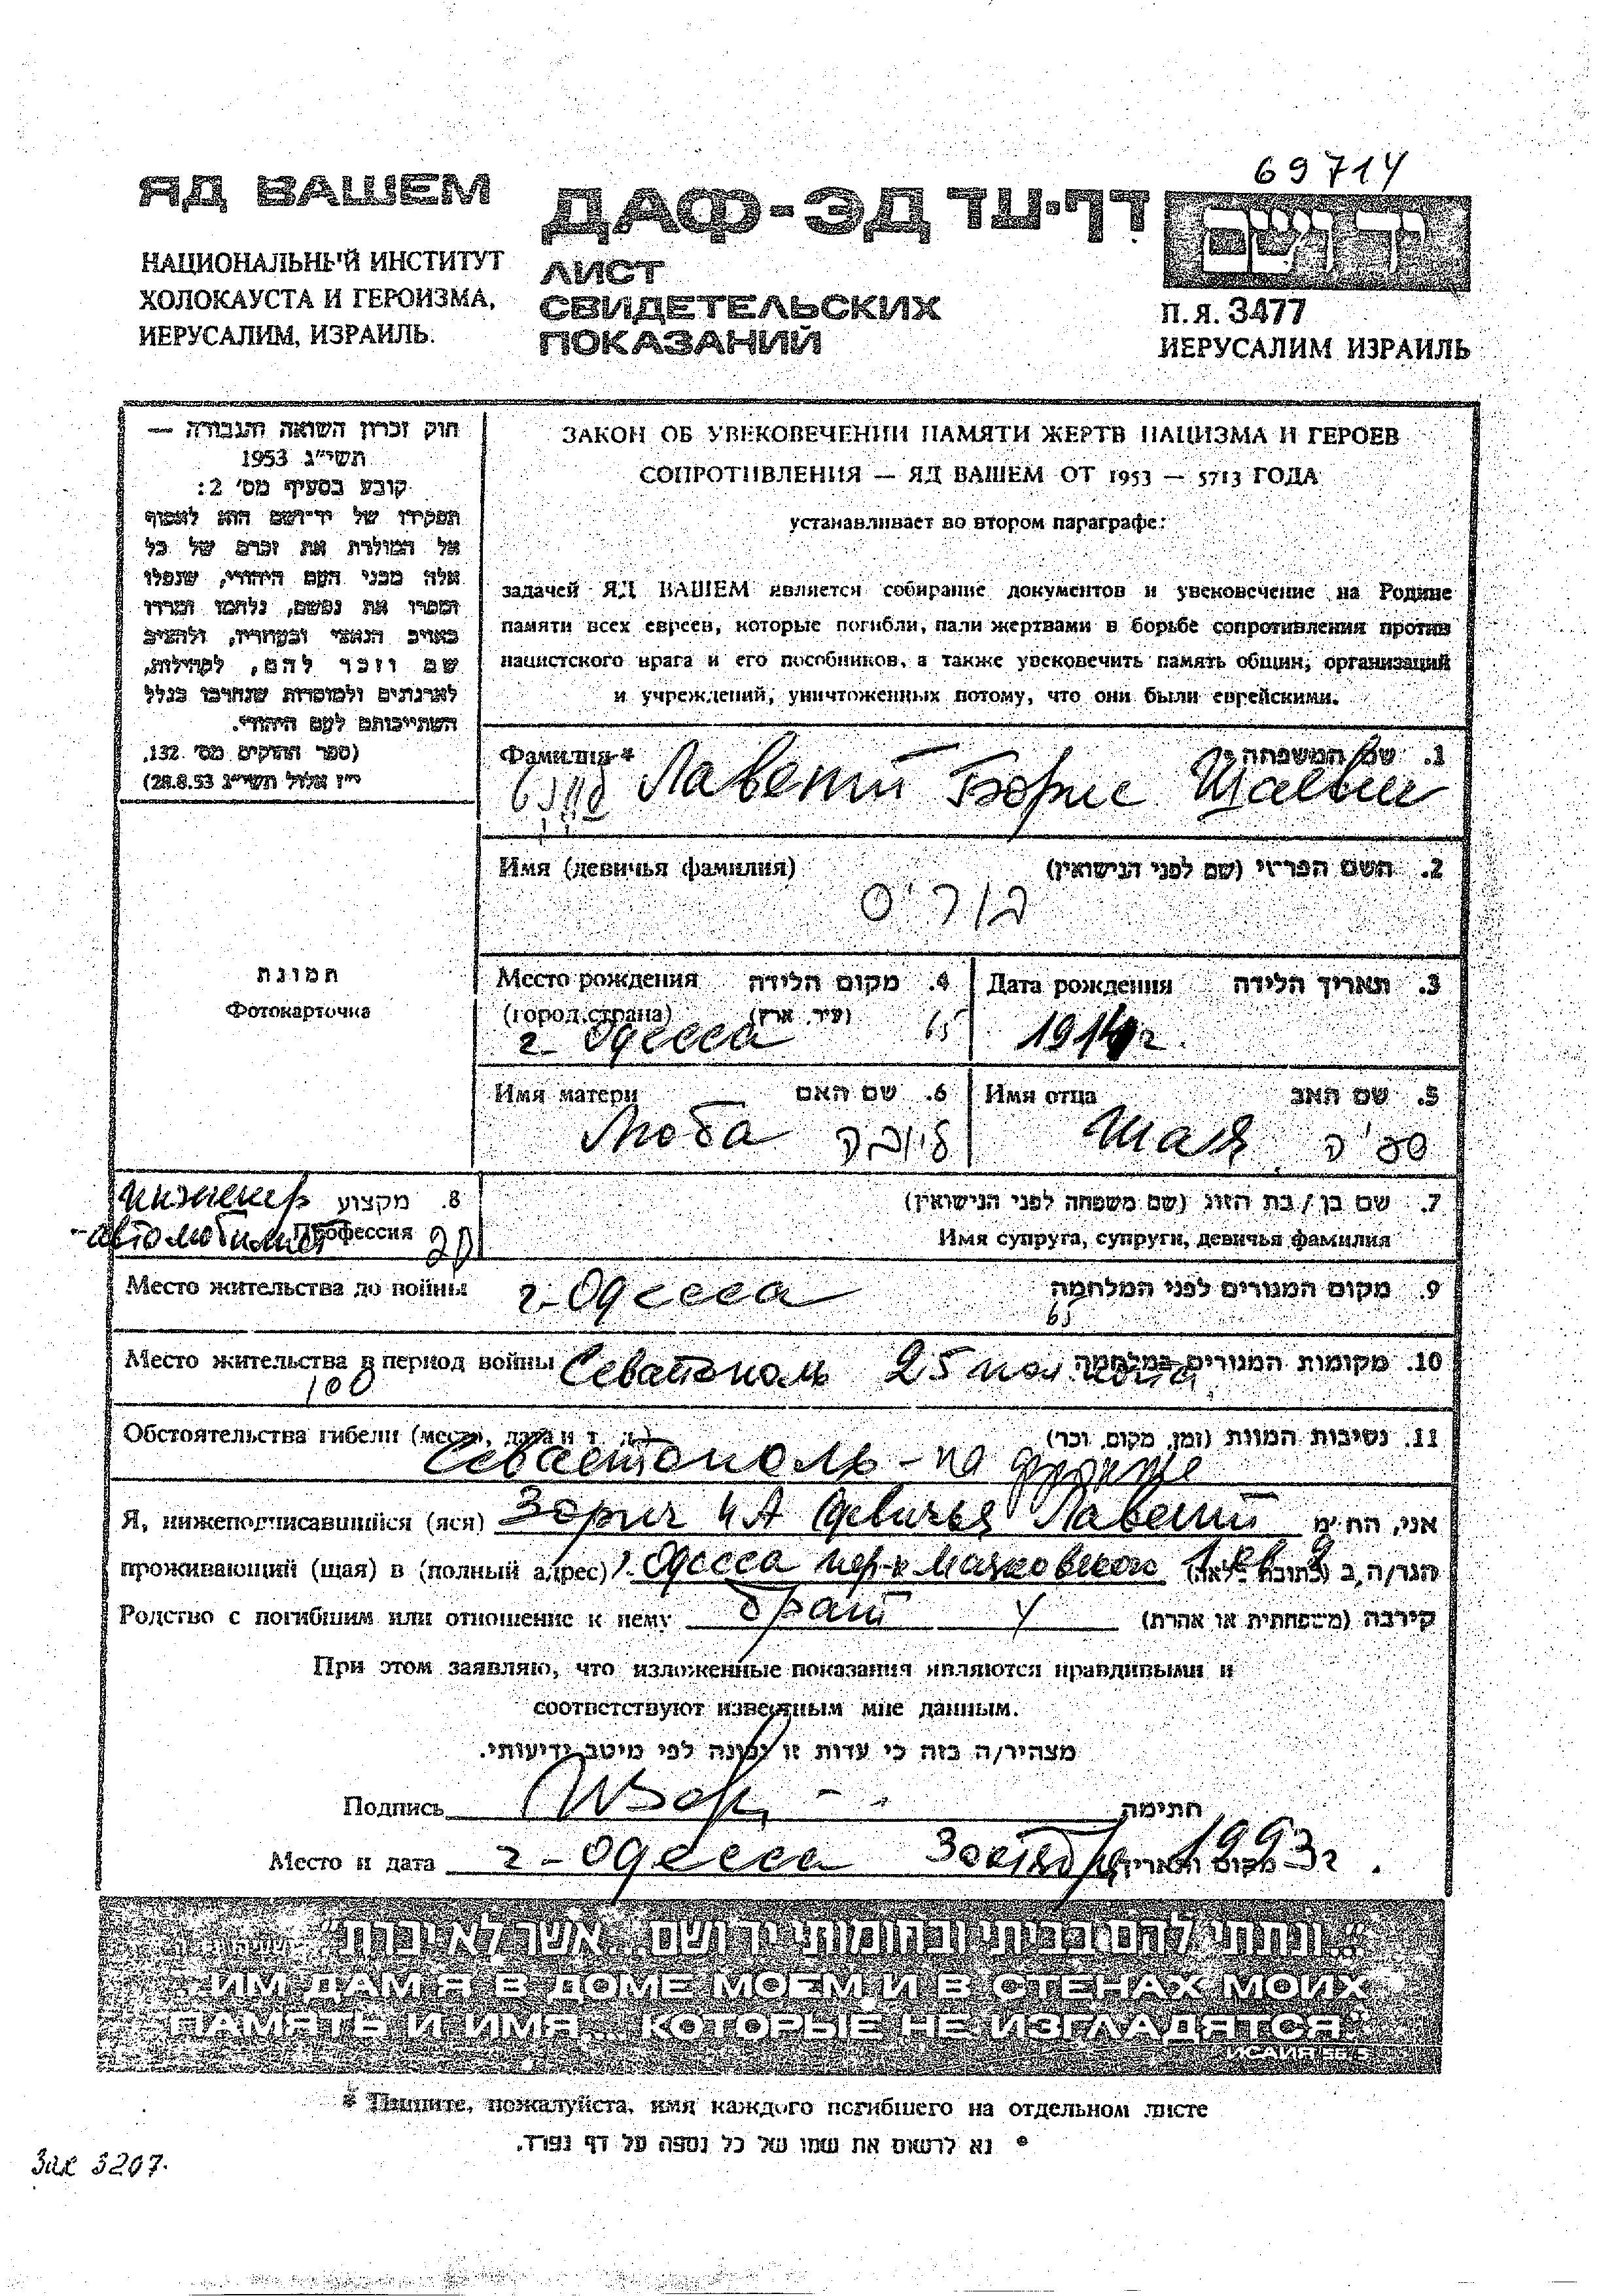 69714
ЯД ВАШЕМ
ДАФ-ЭД דף-עד
יד ושם
НАЦИОНАЛЬНЫЙ ИНСТИТУТ
ХОЛОКАУСТА И ГЕРОИЗМА,
ИЕРУСАЛИМ, ИЗРАИЛЬ.
ЛИСТ
СВИДЕТЕЛЬСКИХ
ПОКАЗАНИЙ
П.Я. 3477
ИЕРУСАЛИМ ИЗРАИЛЬ
חוק זכרון השואה והגבורה —
תשי״ג 1953
קובע בסעיף מס׳ 2:
תפקידו של יד-ושם הוא לאסוף
אל המולדת את זכרם של כל
אלה מבני העם היהודי, שנפלו
ומסרו את נפשם, נלחמו ומרדו
באויב הנאצי ובעוזריו, ולהציב
שם וזכר להם, לקהילות,
לארגונים ולמוסדות שנחרבו בגלל
השתייכותם לעם היהודי.
(ספר החוקים מס׳ 132,
י״ז אלול תשי״ג 28.8.53)
ЗАКОН ОБ УВЕКОВЕЧЕНИИ ПАМЯТИ ЖЕРТВ НАЦИЗМА И ГЕРОЕВ
СОПРОТИВЛЕНИЯ — ЯД ВАШЕМ ОТ 1953 — 5713 ГОДА
устанавливает во втором параграфе:
задачей ЯД ВАШЕМ является собирание документов и увековечение на Родине
памяти всех евреев, которые погибли, пали жертвами в борьбе сопротивления против
нацистского врага и его пособников, а также увековечить память общин, организаций
и учреждений, уничтоженных потому, что они были еврейскими.
Фамилия* 1. שם המשפחה
Лавент Борис Шаевич
Имя (девичья фамилия) 2. השם הפרטי (שם לפני הנישואין)
בוריס
תמונת
Фотокарточка
Место рождения 4. מקום הלידה
(город, страна) (עיר, ארץ)
г. Одесса 65
Дата рождения 3. תאריך הלידה
1914 г.
Имя матери 6. שם האם
Люба ליובה
Имя отца 5. שם האב
Шая
инженер 8. מקצוע
Профессия
7. שם בן / בת הזוג (שם משפחה לפני הנישואין)
Имя супруга, супруги, девичья фамилия
Место жительства до войны г. Одесса 9. מקום המגורים לפני המלחמה
65
Место жительства в период войны 10. מקומות המגורים במלחמה
100
Обстоятельства гибели (место, дата и т. д.) 11. נסיבות המוות (זמן, מקום, וכו׳)
Севастополь - на фронте
Я, нижеподписавшийся (яся) Зорич И А девичья Лавент אני, הח״מ
проживающий (щая) в (полный адрес) г. Одесса пер-к Маяковского הגר/ה ב (כתובת מלאה)
Родство с погибшим или отношение к нему брат קירבה (משפחתית או אחרת)
При этом заявляю, что изложенные показания являются правдивыми и
соответствуют известным мне данным.
מצהיר/ה בזה כי עדות זו נכונה לפי מיטב ידיעותי.
Подпись חתימה
Место и дата г. Одесса 3 октября 1993 г. מקום ותאריך
״...ונתתי להם בביתי ובחומותי יד ושם... אשר לא יכרת״
...ИМ ДАМ Я В ДОМЕ МОЕМ И В СТЕНАХ МОИХ
ПАМЯТЬ И ИМЯ.... КОТОРЫЕ НЕ ИЗГЛАДЯТСЯ."
ИСАИЯ 56, 5
* Пишите, пожалуйста, имя каждого погибшего на отдельном листе
* נא לרשום את שמו של כל נספה על דף נפרד.
Зак 3207.